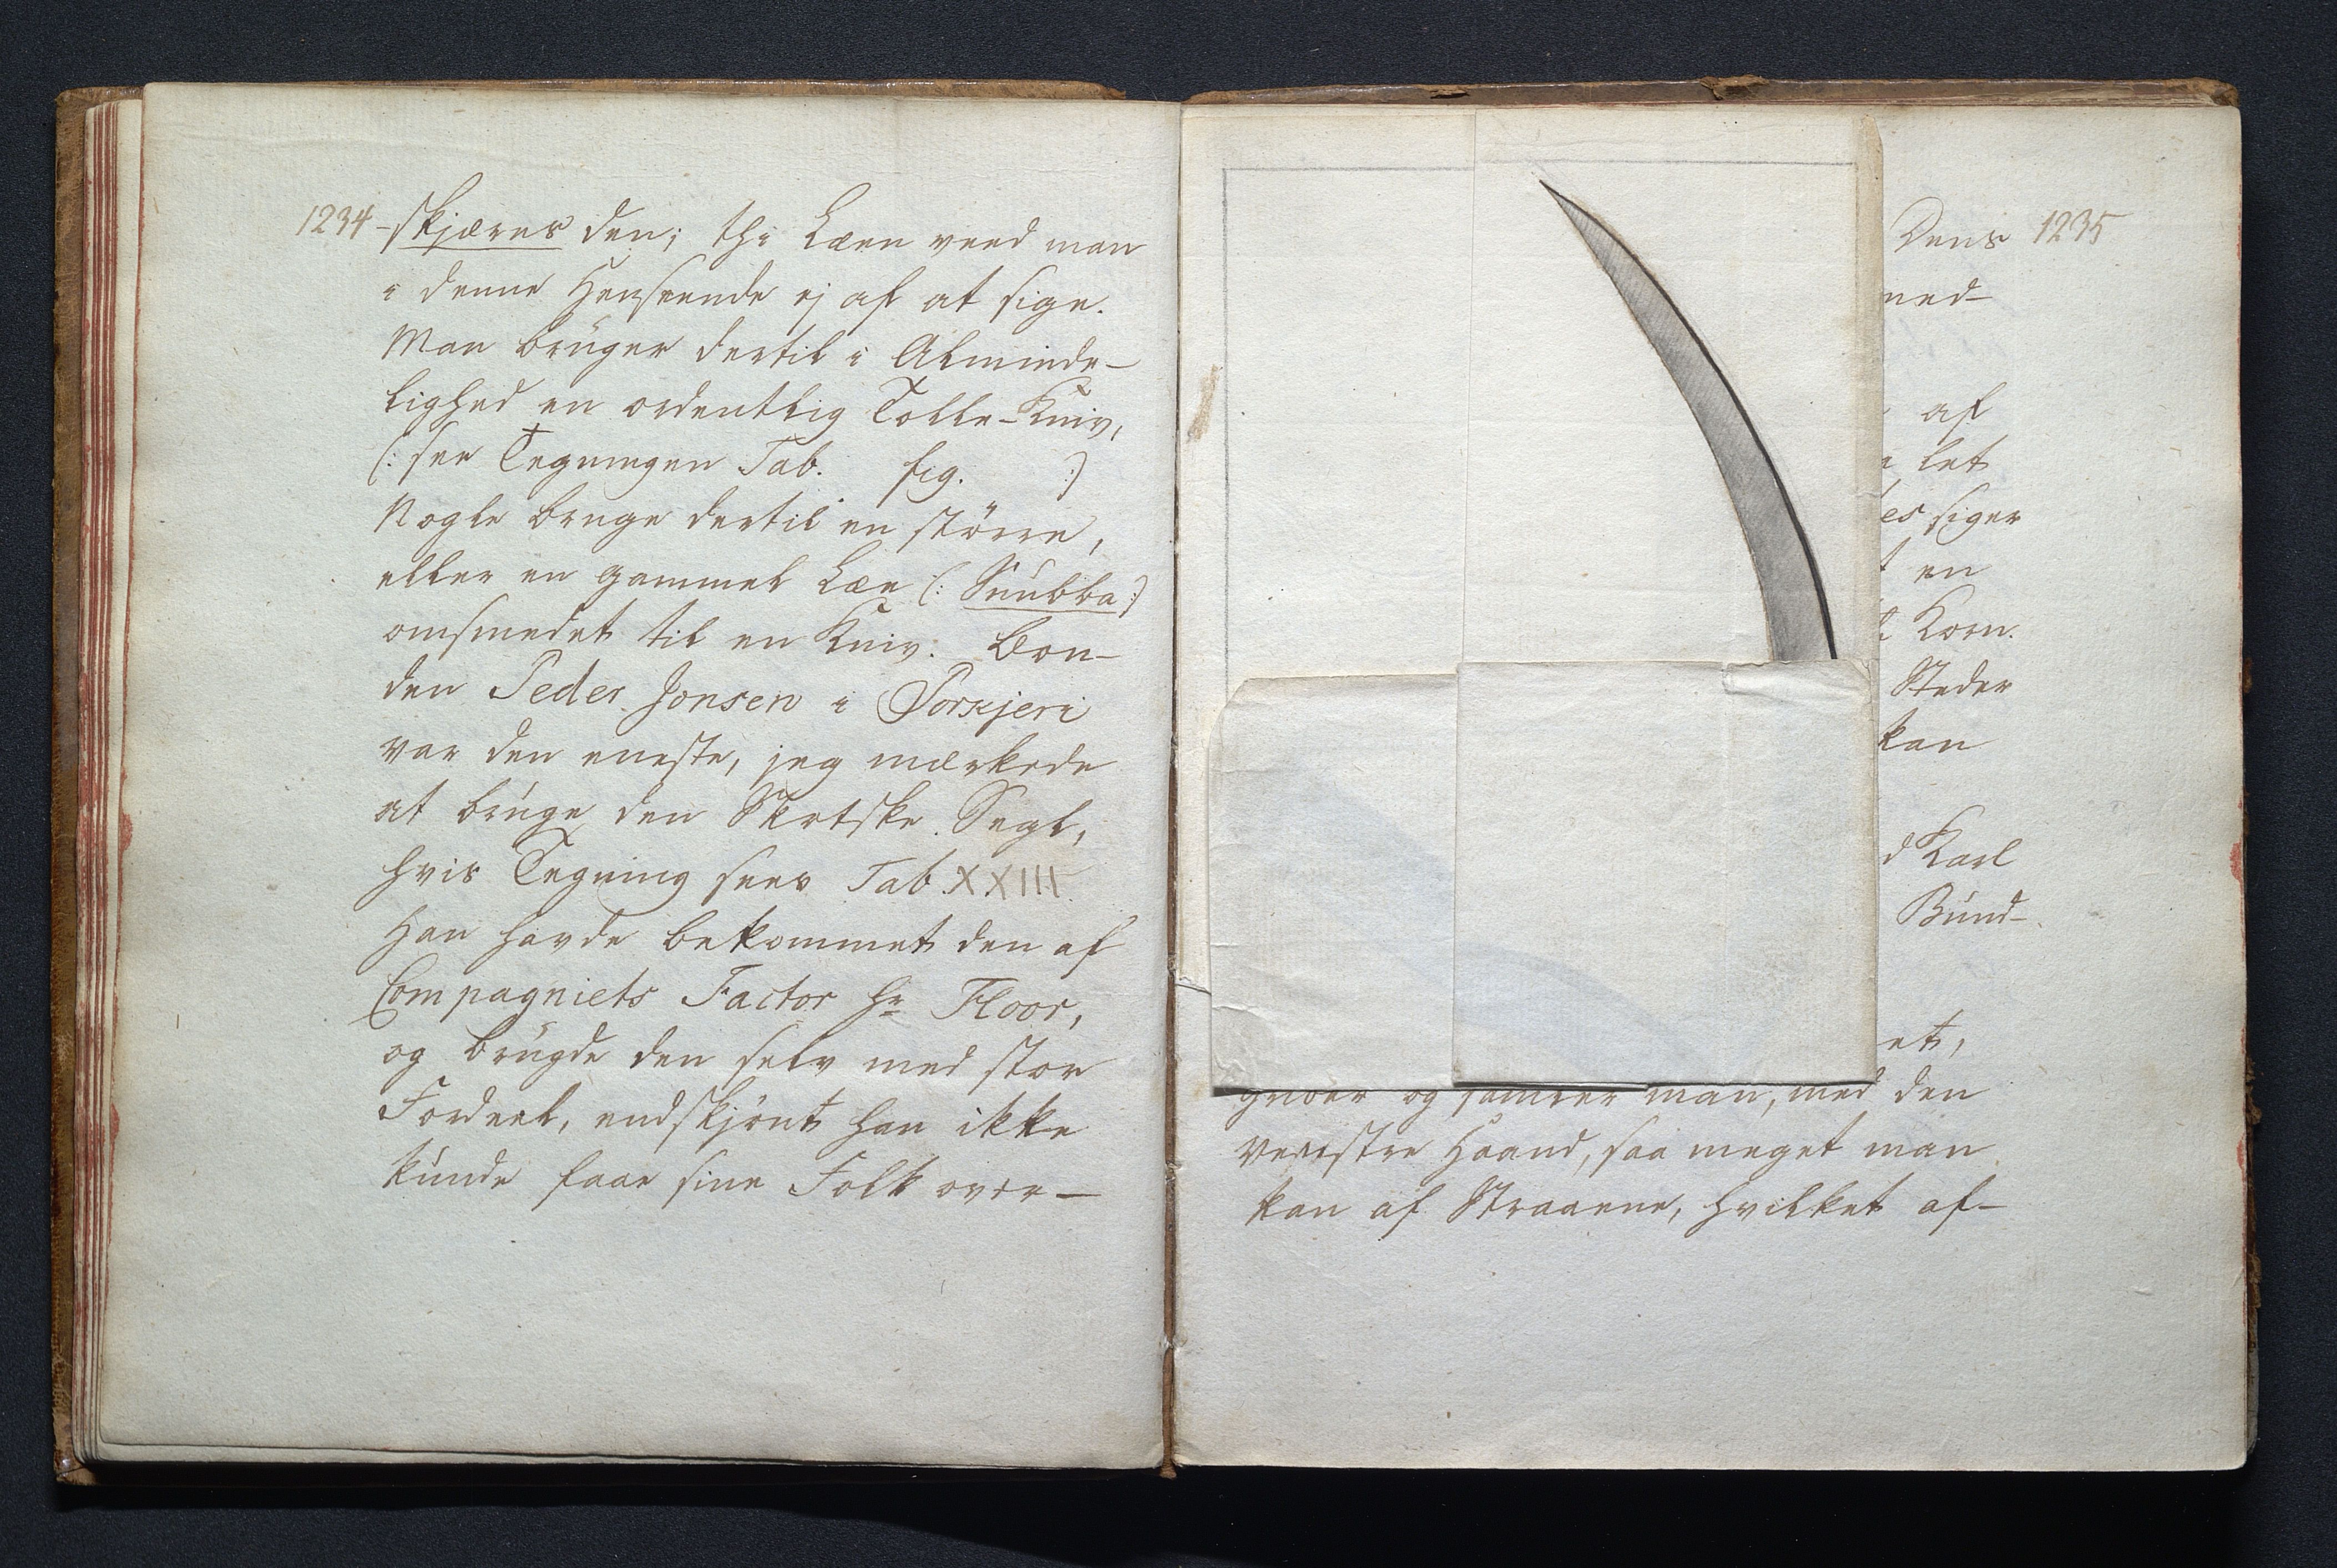 1234 -skjæres den; thi Læen veed man
i denne Henseende ej af at sige.
Man brúger dertil i Alminde-
lighed en ordentlig Tolle-Kniv,
(: see Tegningen Tab. fig. :)
Nogle bruge dertil en större,
eller en gammel Læe (: Snubba :)
omsmedet til en Kniv. Bon-
den Peder Jonsen i Porkjeri
var den eneste, jeg mærkede
at brúge den Skotske Segl,
hvis Tegning sees Tab. XXIII.
Han havde bekommet den af
Compagniets Factor Hr Floor,
og brúgde den selv med stor
Fordeel, endskjönt han ikke
kúnde faae sine Folk over-
Dens 1235
med-
af
let
siger
en
Korn.
Steder
kan
Karl
Búnd-
et,
griber og samler man, med den
venstre Haand, saa meget man
kan af Straaene, hvilket af-